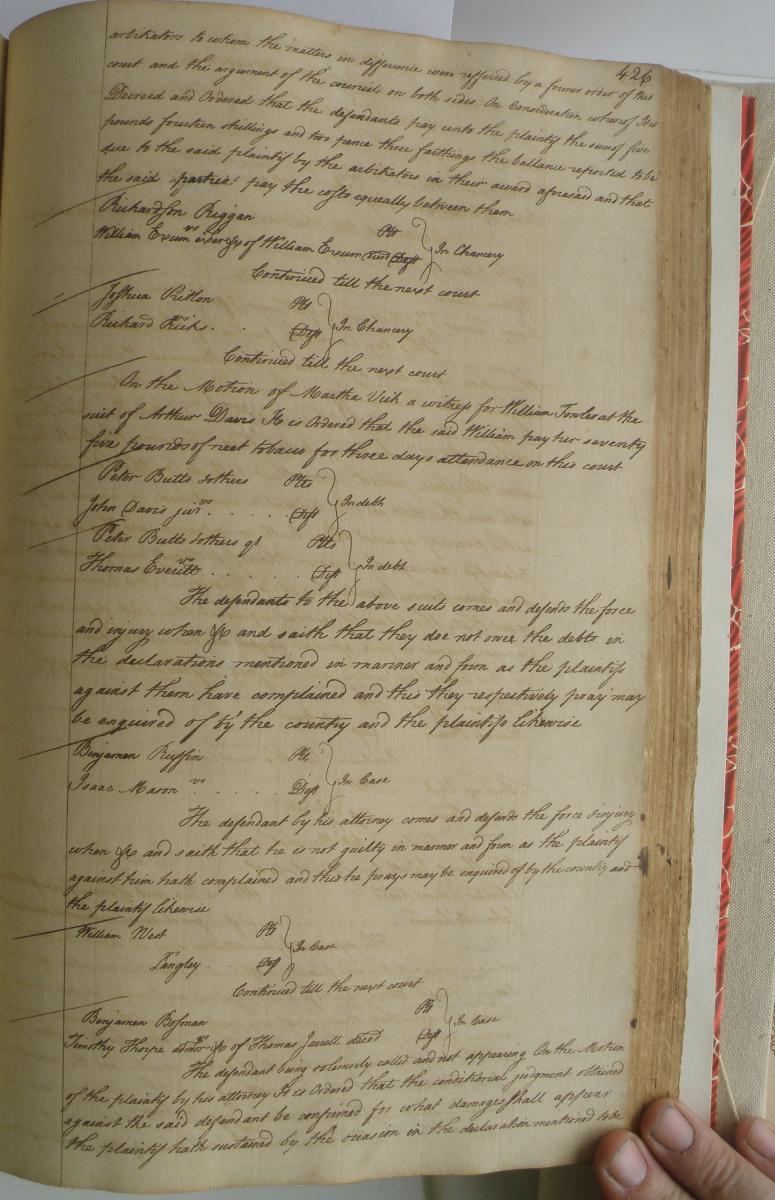 426
arbitrators to whom the matters in difference were refferred by a former order of this
court and the argument of the council on both sides On Consideration whereof It is
Decreed and Ordered that the defendants pay unto the plaintif the sum of five
pounds fourteen shillings and two pence three farthings the ballance reported to be
due to the said plaintif by the arbitrators in their award aforesaid and that
the said parties pay the costs equeally between them
Richardson Riggan Plt
vs In Chancery
William Exum &c of William Exum Deft
Continued till the next court
Joshua Plt
vs In Chancery
Richard Ricks Deft
Continued till the next court
On the Motion of Martha Vick a witness for William Fowler at the
suit of Arthur Davis It is Ordered that the said William pay her seventy
five pounds of neet tobacco for three days attendance on this court
Peter Butts & others Plts
vs In debt
John Davis junr Deft
Peter Butts & others Plts
vs In debt
Thomas Everitt Deft
The defendants to the above suits comes and defends the force
and injury when &c and saith that they doe not owe the debts in
the declarations mentioned in manner and form as the plaintifs
against them have complained and this they respectively pray may
be enquired of by the country and the plaintifs likewise
Benjamen Ruffin Plt
vs In Case
Isaac Mason Deft
The defendant by his attorney comes and defends the force & injury
when &c and saith that he is not guilty in manner and form as the plaintif
against him hath complained and this he prays may be enquired of by the country and
the plaintif likewise
William West Plt
vs In Case
Langley Deft
Continued till the next court
Benjamen Bosman Plt
vs In Case
Timothy Thorpe admor &c of Thomas Jarrell deced Deft
The defendant being solemnly called and not appearing On the Motion
of the plaintif by his attorney It is Ordered that the conditional judgment obtained
against the said defendant be confirmed for what damages shall appear
the plaintif hath sustained by the occasion in the declaration mentioned to be